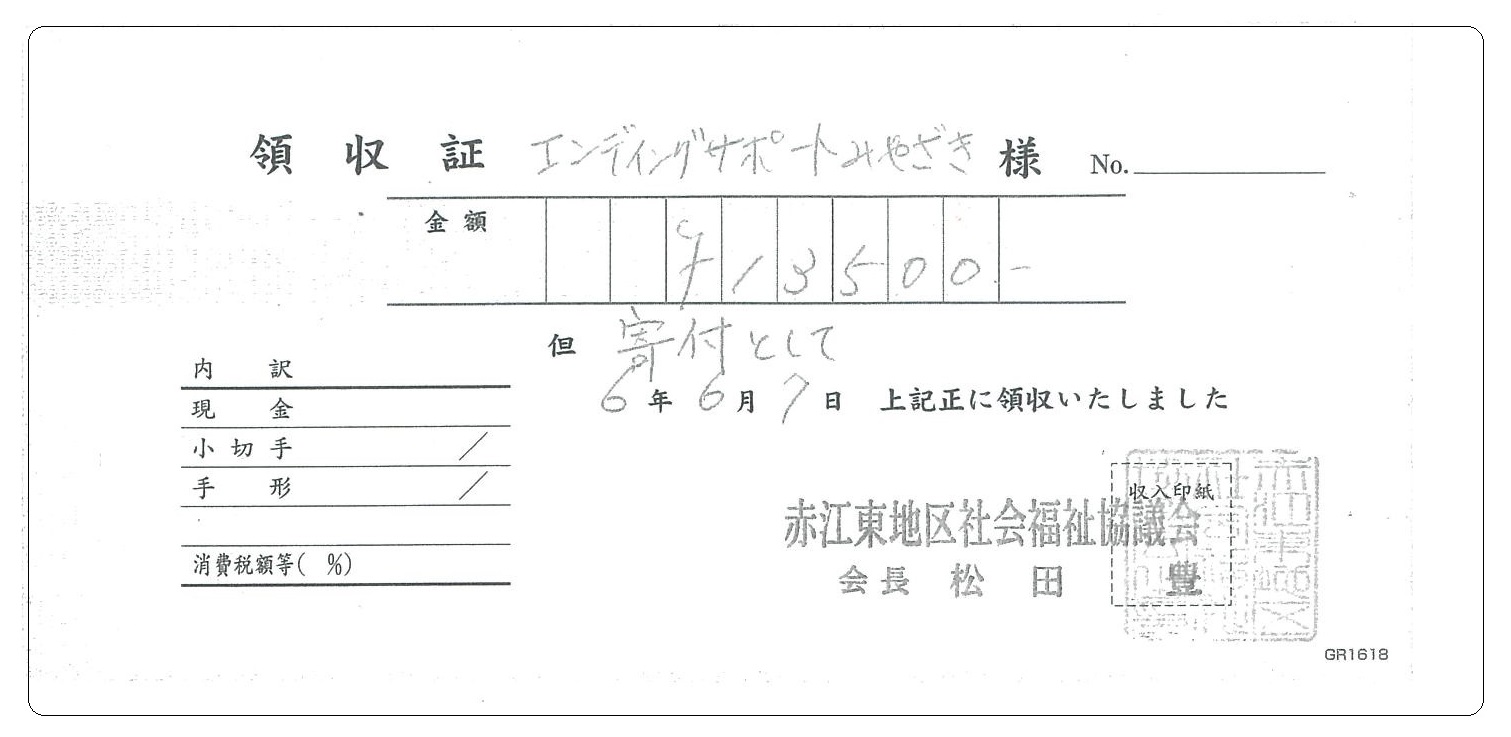 領収証 エンディングサポートみやざき 様 No.
金額 ¥13500-
但 寄付として
6年6月7日 上記正に領収いたしました
内訳
現金
小切手 /
手形 /
消費税額等( %)
収入印紙
赤江東地区社会福祉協議会
会長 松田 豊
GR1618